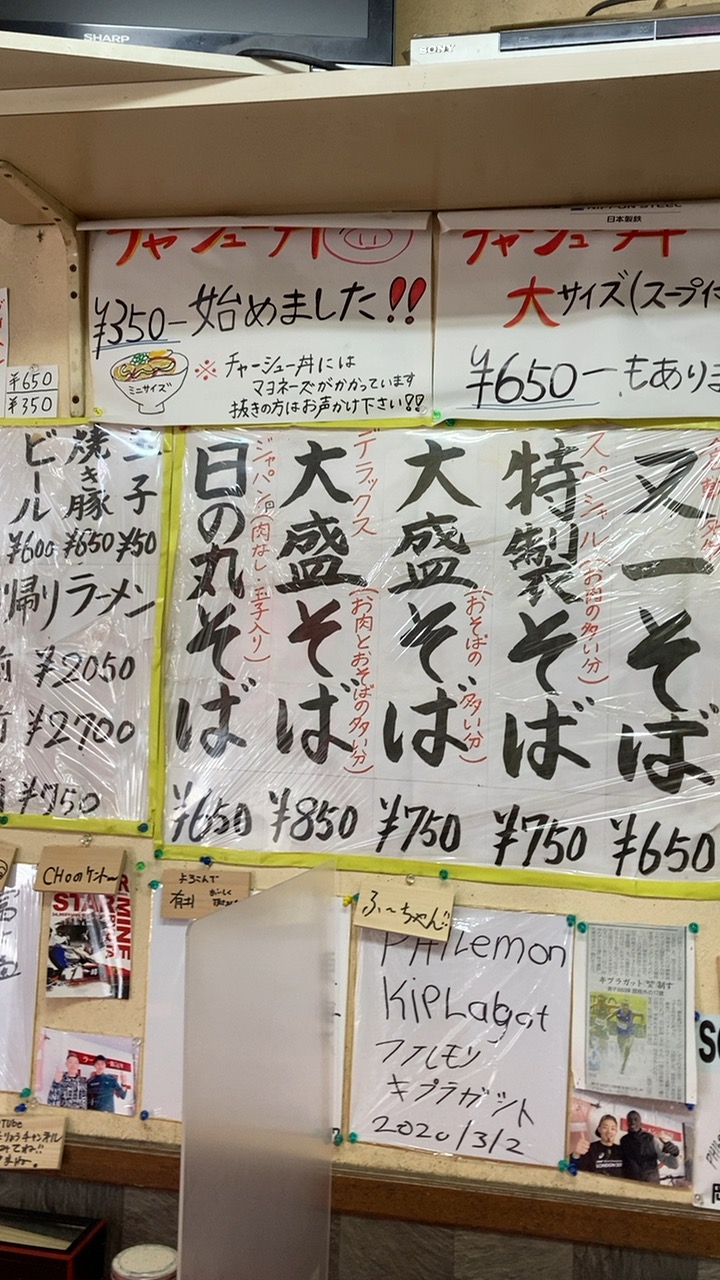 SHARP
SONY
NIPPON STEEL
日本製鉄
チャーシュー丼
¥350-始めました!!
ミニサイズ
※チャーシュー丼には
マヨネーズがかかっています
抜きの方はお声かけ下さい!!
チャーシュー丼
大サイズ(スープ付
¥650-もありま
¥650
¥350
又一そば
¥650
スペシャル(お肉の多い分)
特製そば
¥750
大盛そば
(おそばの多い分)
¥750
デラックス
大盛そば
(お肉とおそばの多い分)
¥850
ジャパン(肉なし・玉子入り)
日の丸そば
¥650
玉子
¥50
焼き豚
¥650
ビール
¥600
帰りラーメン
前 ¥2050
前 ¥2700
¥750
CHOのケントー
よろこんで
ふ〜ちゃん!!
PHILemon
KiPLagat
フィルモン
キプラガット
2020/3/2
キプラガット 制す
Tube
りょうチャンネル
みてね!!